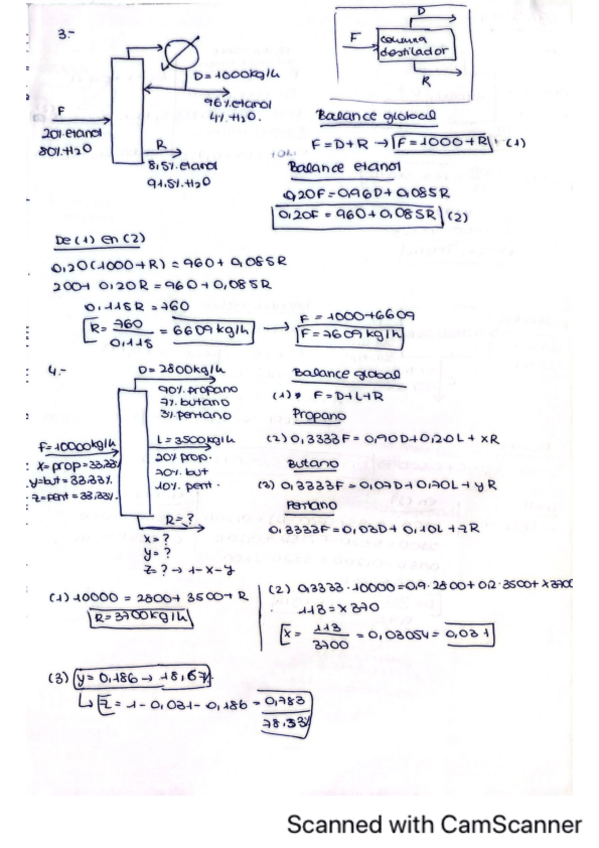 3.-
D = 1000kg/h
96% etanol
4% H2O.
F
20% etanol
80% H2O
R
8,5% etanol
91,5% H2O
D
F
columna
destilador
R
Balance global
F = D+R → F = 1000+R (1)
Balance etanol
0,20F = 0,96D + 0,085R
0,20F = 960 + 0,085R (2)
De (1) en (2)
0,20(1000+R) = 960 + 0,085R
200 + 0,20R = 960 + 0,085R
0,115R = 760
R = 760 / 0,115 = 6609 kg/h → F = 1000+6609
F = 7609 kg/h
4.-
D = 2800kg/h
90% propano
7% butano
3% pentano
F = 10000kg/h
x = prop = 33,33%
y = but = 33,33%
z = pent = 33,33%
L = 3500kg/h
20% prop.
70% but
10% pent.
R = ?
x = ?
y = ?
z = ? → 1-x-y
Balance global
(1) F = D+L+R
Propano
(2) 0,3333F = 0,90D + 0,20L + xR
Butano
(3) 0,3333F = 0,07D + 0,70L + yR
Pentano
0,3333F = 0,03D + 0,10L + zR
(1) 10000 = 2800 + 3500 + R
R = 3700kg/h
(2) 0,3333·10000 = 0,9·2800 + 0,2·3500 + x3700
113 = x 370
x = 113 / 3700 = 0,03054 = 0,031
(3) y = 0,186 → 18,6%
z = 1 - 0,031 - 0,186 = 0,783
78,3%
Scanned with CamScanner